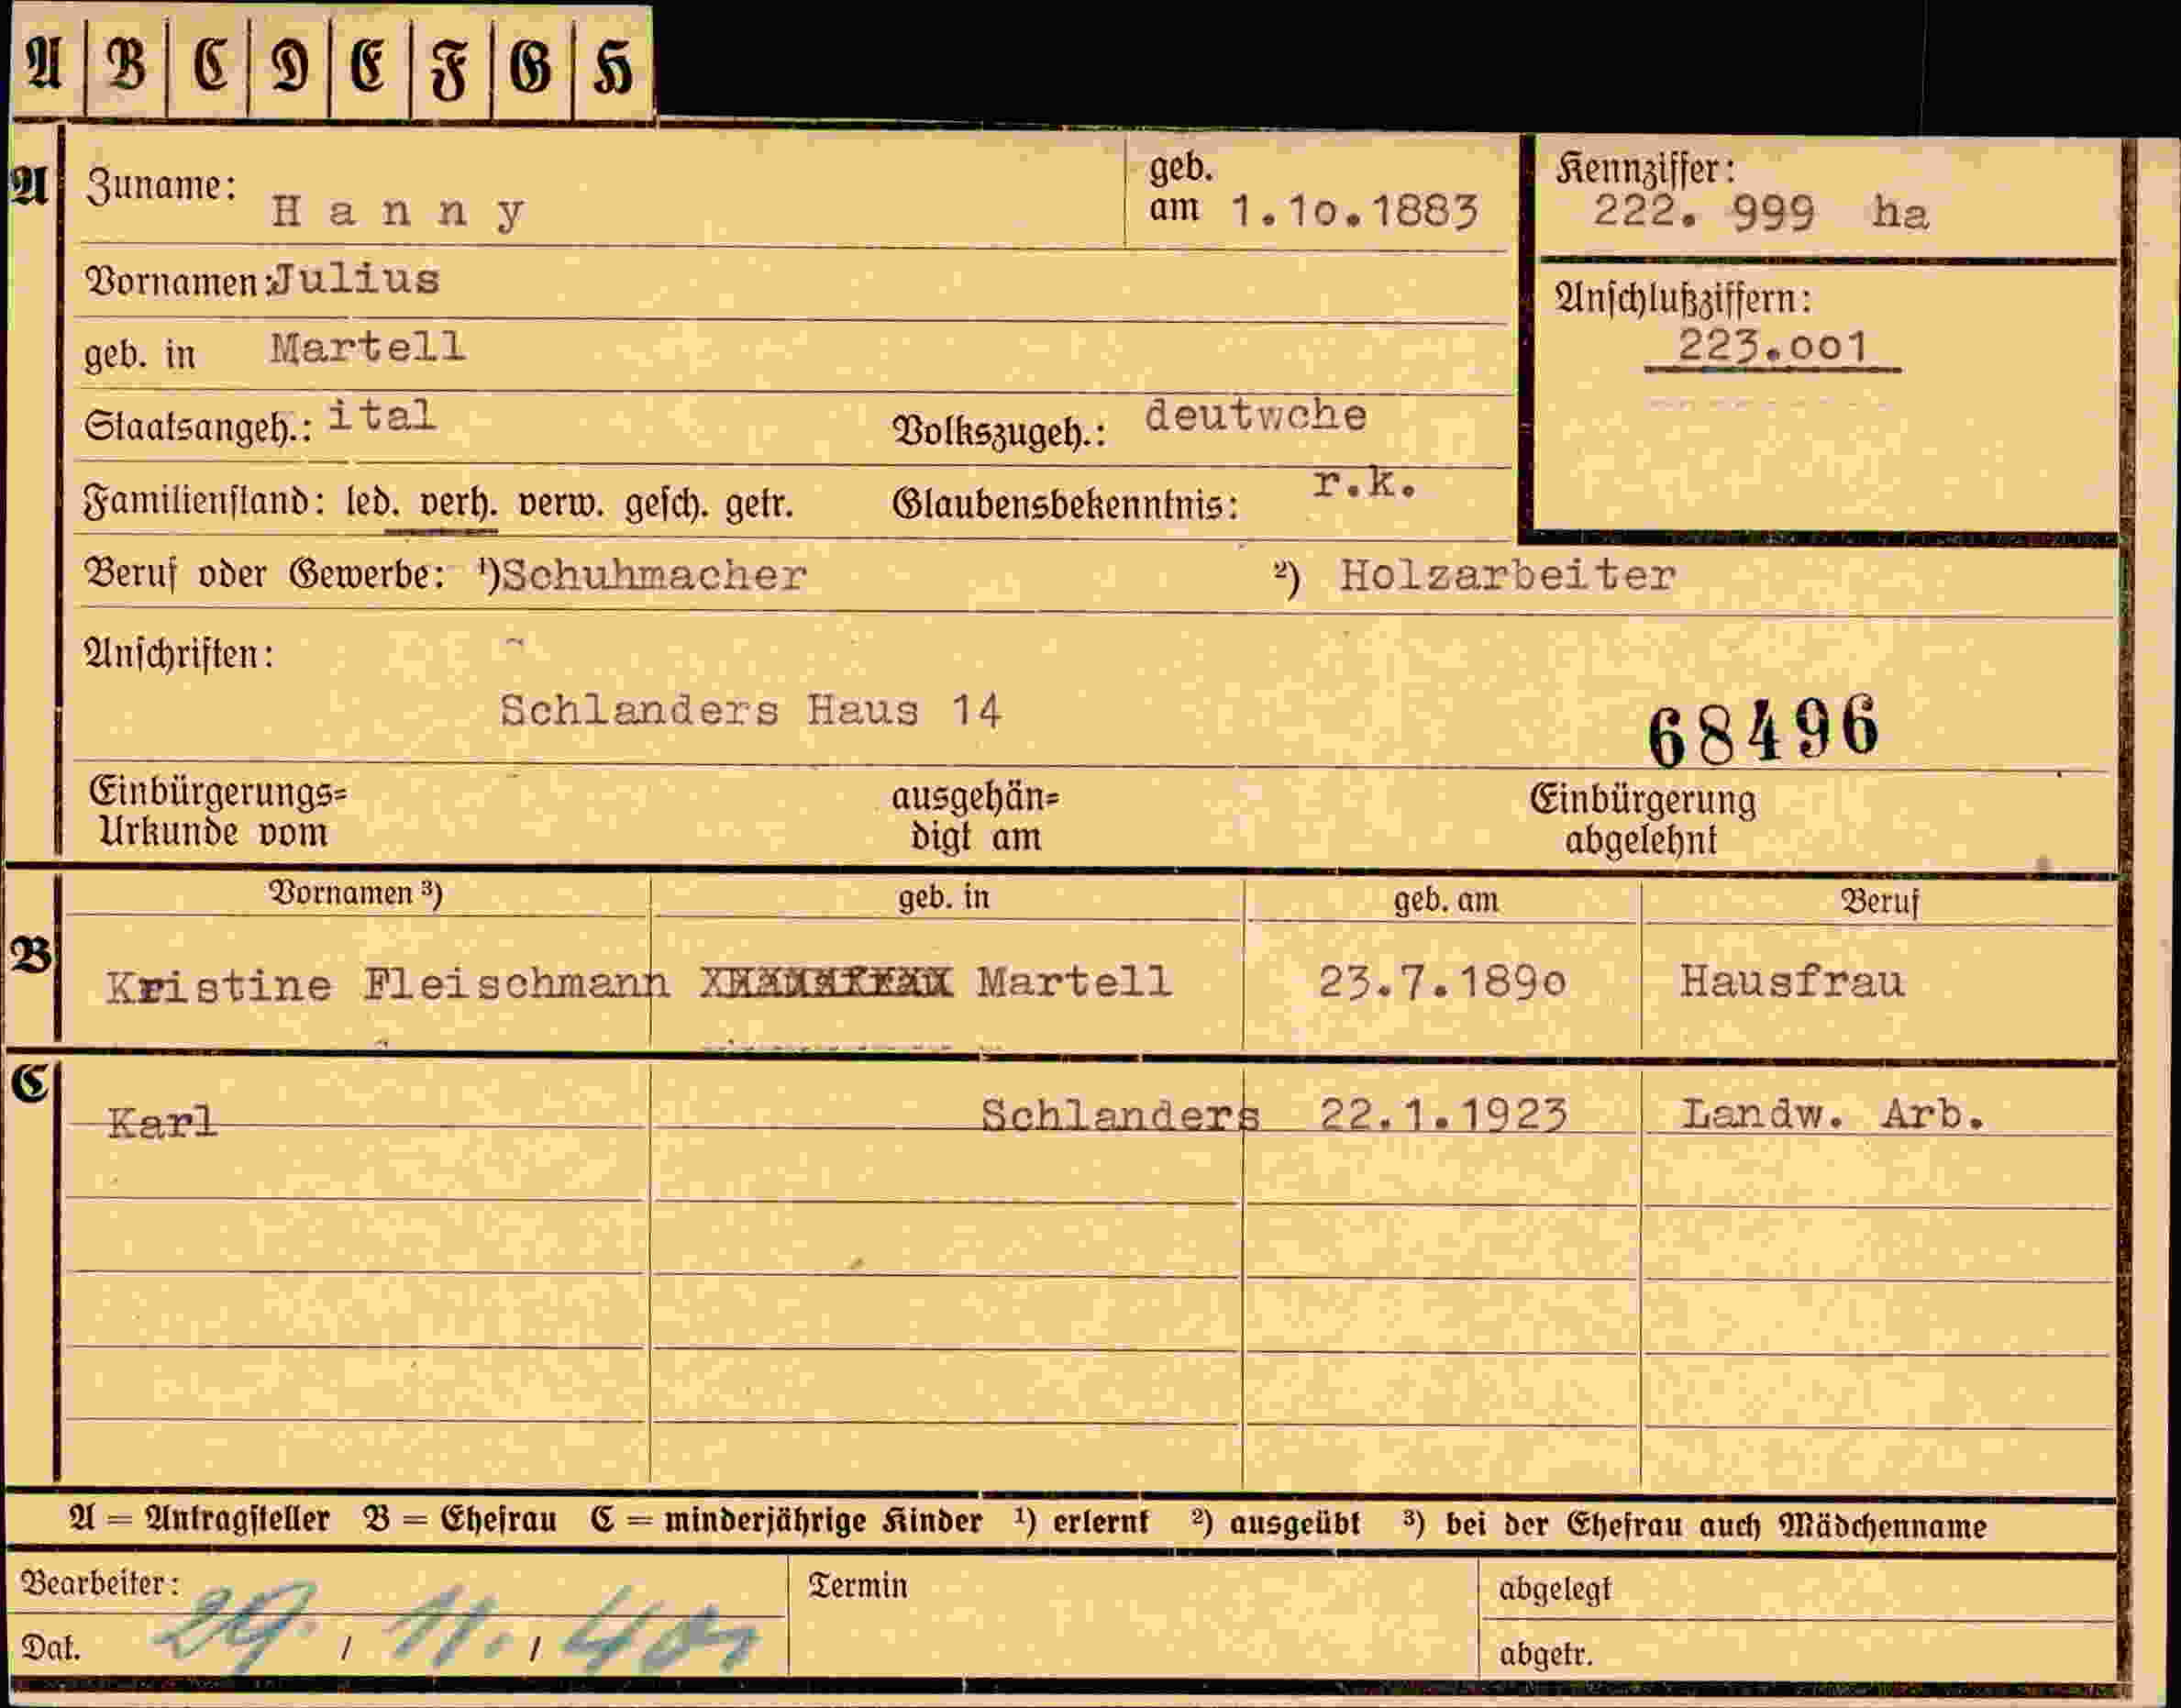 A B C D E F G H
A Zuname: Hanny geb. am 1.10.1883 Kennziffer: 222. 999 ha
Vornamen: Julius
Anschlußziffern: 223.001
geb. in Martell
Staatsangeh.: ital Volkszugeh.: deutwche
Familienstand: led. verh. verw. gesch. getr. Glaubensbekenntnis: r.k.
Beruf oder Gewerbe: ¹) Schuhmacher ²) Holzarbeiter
Anschriften:
Schlanders Haus 14
68496
Einbürgerungs= ausgehän= Einbürgerung
Urkunde vom digt am abgelehnt
Vornamen ³) geb. in geb. am Beruf
B Kristine Fleischmann Martell 23.7.1890 Hausfrau
C Karl Schlanders 22.1.1923 Landw. Arb.
A = Antragsteller B = Ehefrau C = minderjährige Kinder ¹) erlernt ²) ausgeübt ³) bei der Ehefrau auch Mädchenname
Bearbeiter: Termin abgelegt
Dat. 29. / 11. / 40 abgetr.